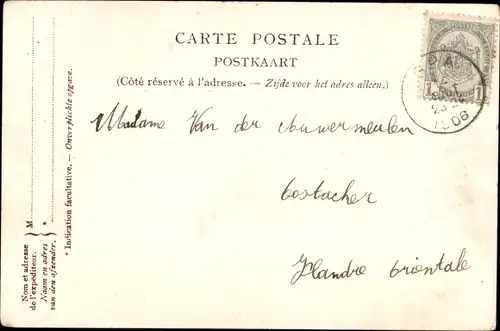 CARTE POSTALE
POSTKAART
(Côté réservé à l'adresse. — Zijde voor het adres alleen.)
1 1
1908
Madame Van der Auwermeulen
Oostacker
Flandre Orientale
Nom et adresse
de l'expéditeur.
Naam en adres
van den afzender.
M
*
* Indication facultative. — Onverplichte opgave.